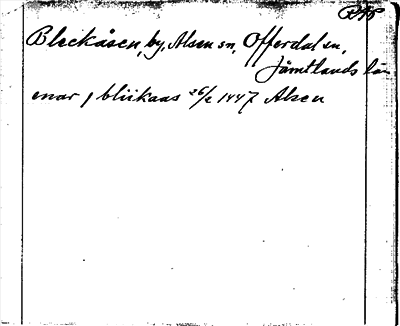 Bleckåsen, by, Alsen sn, Offerdal sn,
Jämtlands län
enar j bliikaas 26/2 1447 Alsen